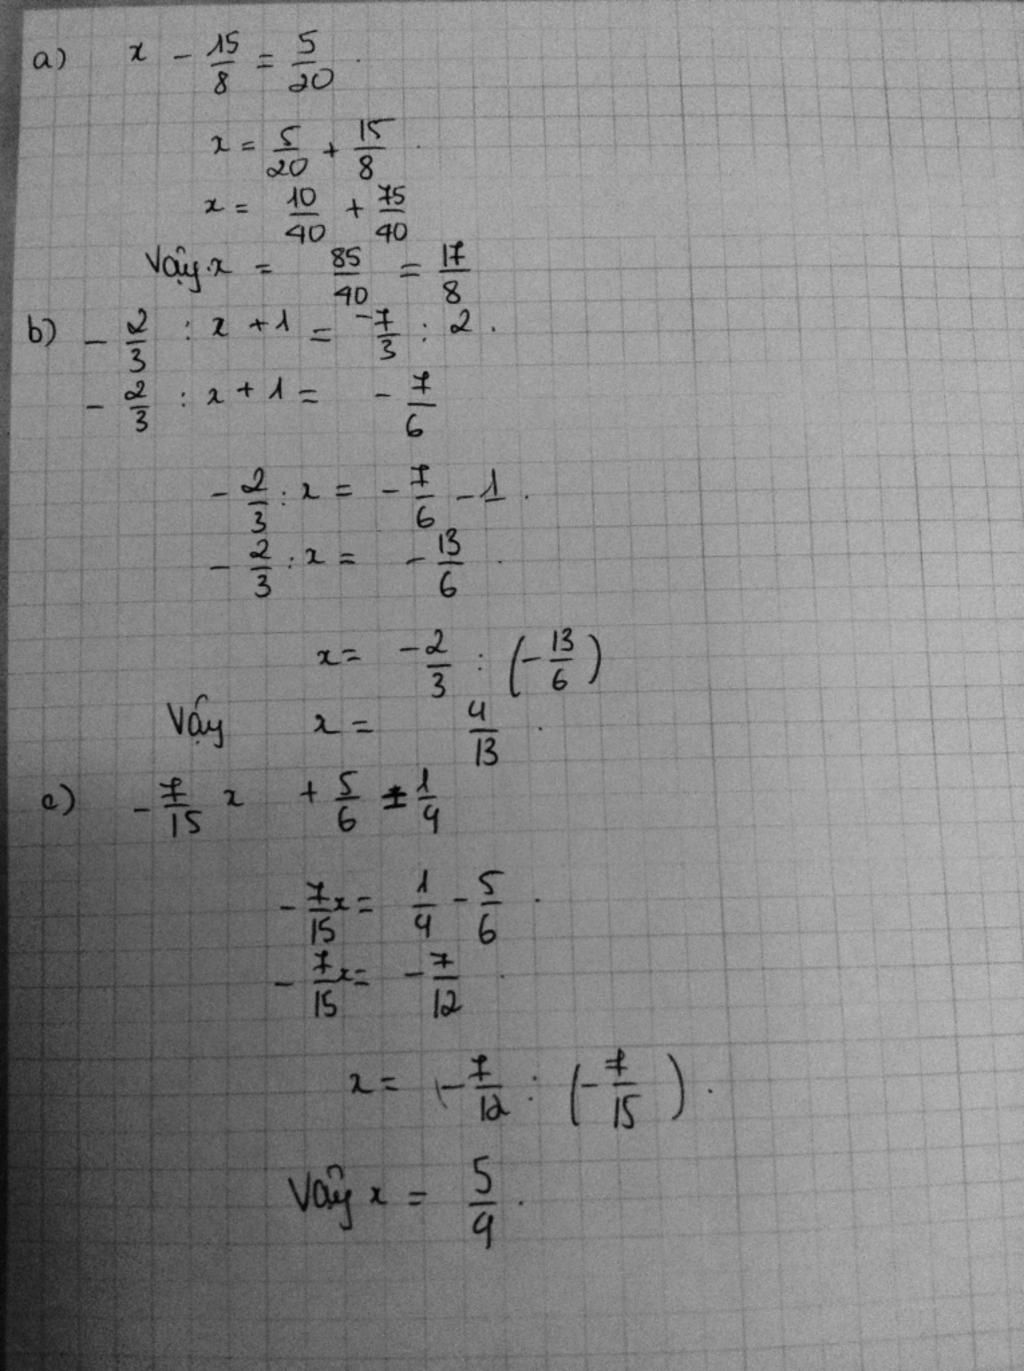 a) x - 15/8 = 5/20.
x = 5/20 + 15/8.
x = 10/40 + 75/40
Vậy x = 85/40 = 17/8
b) - 2/3 : x + 1 = -7/3 : 2.
- 2/3 : x + 1 = - 7/6
- 2/3 : x = - 7/6 - 1.
- 2/3 : x = - 13/6.
x = -2/3 : (- 13/6)
Vậy x = 4/13.
c) - 7/15 x + 5/6 = 1/4
- 7/15 x = 1/4 - 5/6.
- 7/15 x = - 7/12.
x = - 7/12 : (- 7/15).
Vậy x = 5/4.